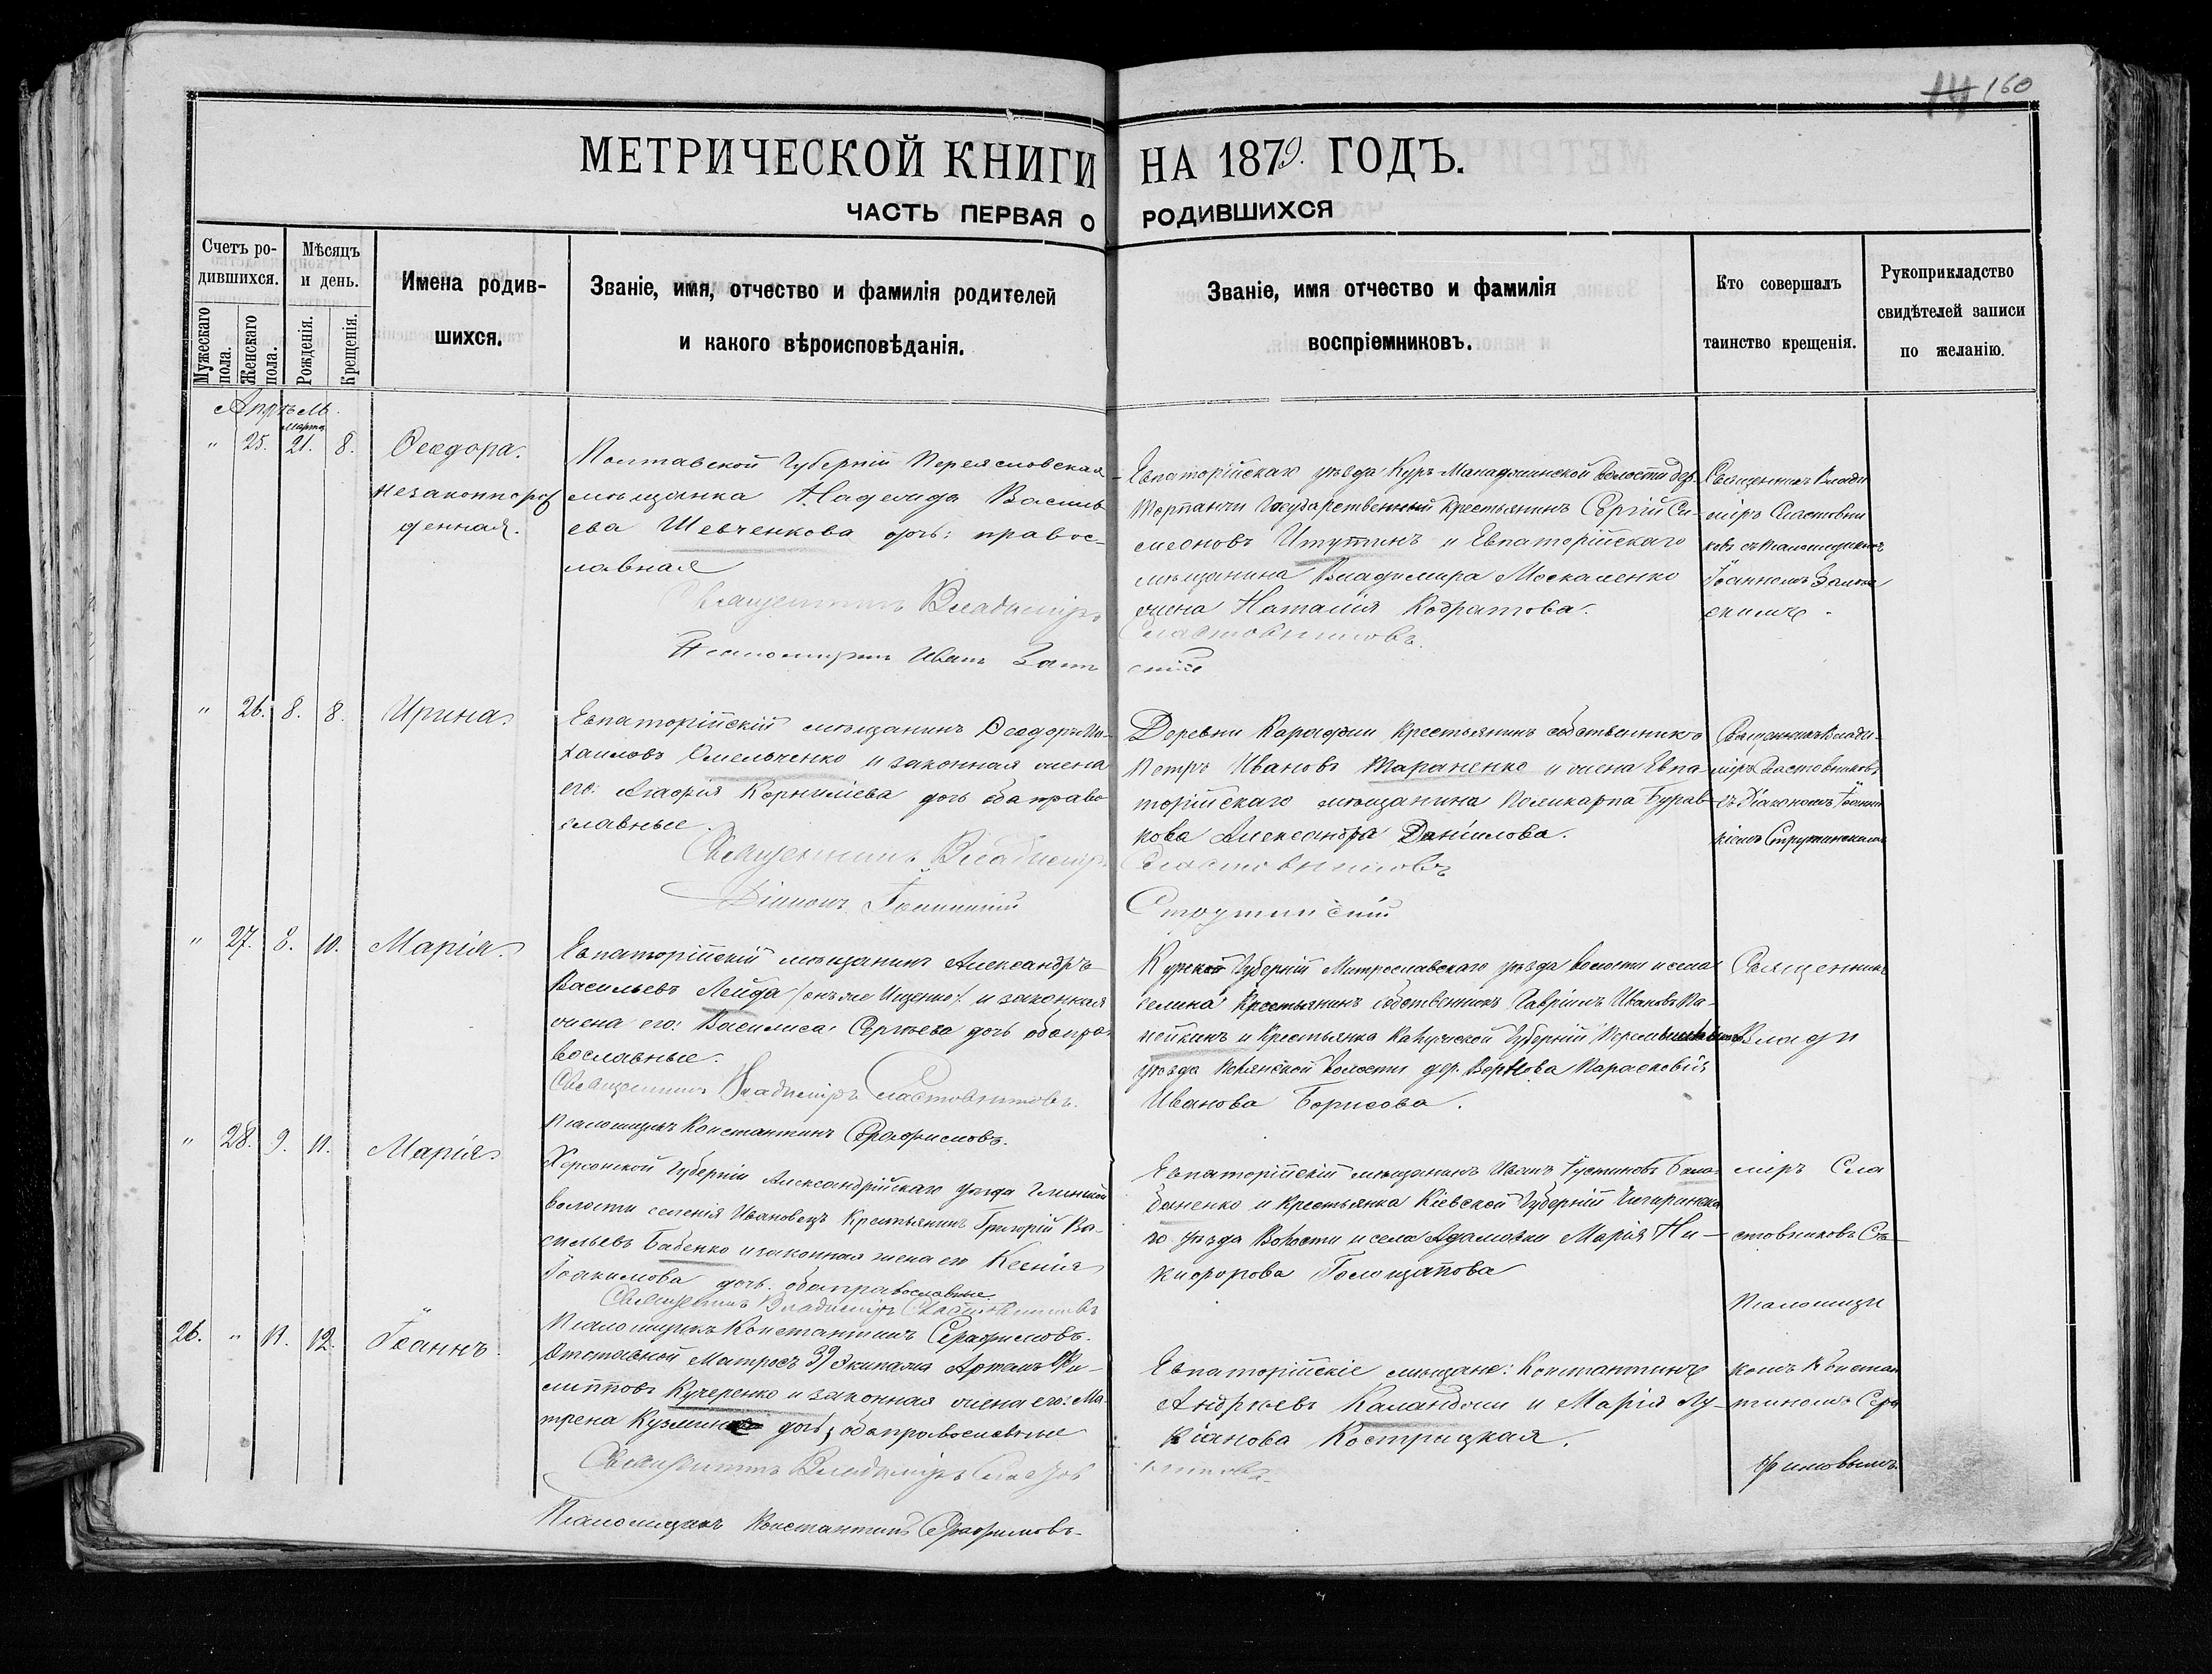 14 160
МЕТРИЧЕСКОЙ КНИГИ НА 1879. ГОДЪ.
ЧАСТЬ ПЕРВАЯ О РОДИВШИХСЯ
Счетъ ро-
дившихся.
Мужескаго пола.
Женскаго пола.
Мѣсяцъ
и день.
Рожденія.
Крещенія.
Имена родив-
шихся.
Званіе, имя, отчество и фамилія родителей
и какого вѣроисповѣданія.
Званіе, имя отчество и фамилія
воспріемниковъ.
Кто совершалъ
таинство крещенія.
Рукоприкладство
свидѣтелей записи
по желанію.
Апрѣль.
Марта
" 25. 21. 8.
Ѳеодора.
незаконнорож
денная.
Полтавской Губерніи Переясловская
мѣщанка Надежда Василь
ева Шевченкова дочь: правос-
лавная
Священникъ Владиміръ Сластовниковъ.
Псаломщикъ Иванъ
Евпаторійскаго уѣзда Куръ-Манаджинской волости дер.
Тарпанчи Государственный Крестьянинъ Сергій Си-
меоновъ и Евпаторійскаго
мѣщанина Владимира Москаленко
жена Наталія Кодратова.
Священникъ Влади
міръ Сластовни
ковъ съ Псаломщикомъ
Іоанномъ
" 26. 8. 8.
Ирина.
Евпаторійскій мѣщанинъ Ѳеодоръ Ми-
хаиловъ Омельченко и законная жена
его: Агафія Корниліева дочь оба право
славные.
Священникъ Владиміръ Сластовниковъ
Діаконъ Іоанникій Струтинскій
Деревни Караджи Крестьянинъ собственникъ
Петръ Ивановъ Тараненко и жена Евпа-
торійскаго мѣщанина Поликарпа Бурав-
кова Александра Данілова.
Священникъ Влади-
міръ Сластовниковъ
съ Діакономъ Іоанни
кіемъ Струтинскимъ
" 27. 8. 10.
Марія.
Евпаторійскій мѣщанинъ Александръ
Васильевъ Лейда /онъ же Ищенко/ и законная
жена его: Василиса Сергѣева дочь оба пра
вославные.
Священникъ Владиміръ Сластовниковъ.
Псаломщикъ Константинъ Серафимовъ.
Курской Губерній уѣзда волости и села
Крестьянинъ собственникъ Гавріилъ Ивановъ
и Крестьянка Калужской Губерній
уѣзда волости дер. Параскевія
Иванова Борисова.
Священникъ
Влади
" 28. 9. 11.
Марія.
Херсонской Губерніи Александрійскаго уѣзда Глинской
волости селенія Ивановецъ Крестьянинъ Григорій Ва-
сильевъ Бабенко и законная жена его Ксенія
Іоакимова дочь оба православные
Священникъ Владиміръ Сластовниковъ
Псаломщикъ Константинъ Серафимовъ.
Евпаторійскій мѣщанинъ Иванъ Іустиновъ Бала-
баненко и Крестьянка Кіевской Губерній Чигиринска
го уѣзда Волости и села Адамовки Марія Ни-
кифорова
міръ Сла
стовниковъ Съ
Псаломщи
26. " 11. 12.
Іоаннъ.
Отставной Матросъ 39 Экипажа Артемъ Фи-
липповъ Кучеренко и законная жена его: Ма
трена Кузминова дочь, оба православные
Священникъ Владиміръ Сластовниковъ.
Псаломщикъ Константинъ Серафимовъ.
Евпаторійскіе мѣщане: Константинъ
Андреевъ и Марія Лу-
кіанова Кострицкая.
комъ Констан
тиномъ Сера
фимовымъ.